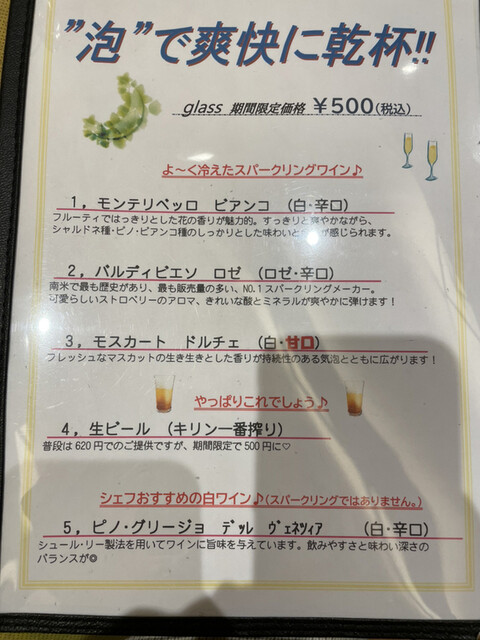 ”泡”で爽快に乾杯!!
glass 期間限定価格 ￥500(税込)
よ～く冷えたスパークリングワイン♪
1，モンテリベッロ ビアンコ （白・辛口）
フルーティではっきりとした花の香りが魅力的。すっきりと爽やかながら、
シャルドネ種・ピノ・ビアンコ種のしっかりとした味わいと が感じられます。
2，バルディビエソ ロゼ （ロゼ・辛口）
南米で最も歴史があり、最も販売量の多い、NO.1スパークリングメーカー。
可愛らしいストロベリーのアロマ、きれいな酸とミネラルが爽やかに弾けます！
3，モスカート ドルチェ （白・甘口）
フレッシュなマスカットの生き生きとした香りが持続性のある気泡とともに広がります！
やっぱりこれでしょう♪
4，生ビール （キリン一番搾り）
普段は620円でのご提供ですが、期間限定で500円に♡
シェフおすすめの白ワイン♪(スパークリングではありません。)
5，ピノ・グリージョ ﾃﾞｯﾙ ｳﾞｪﾈﾂｨｱ （白・辛口）
シュール・リー製法を用いてワインに旨味を与えています。飲みやすさと味わい深さの
バランスが◎